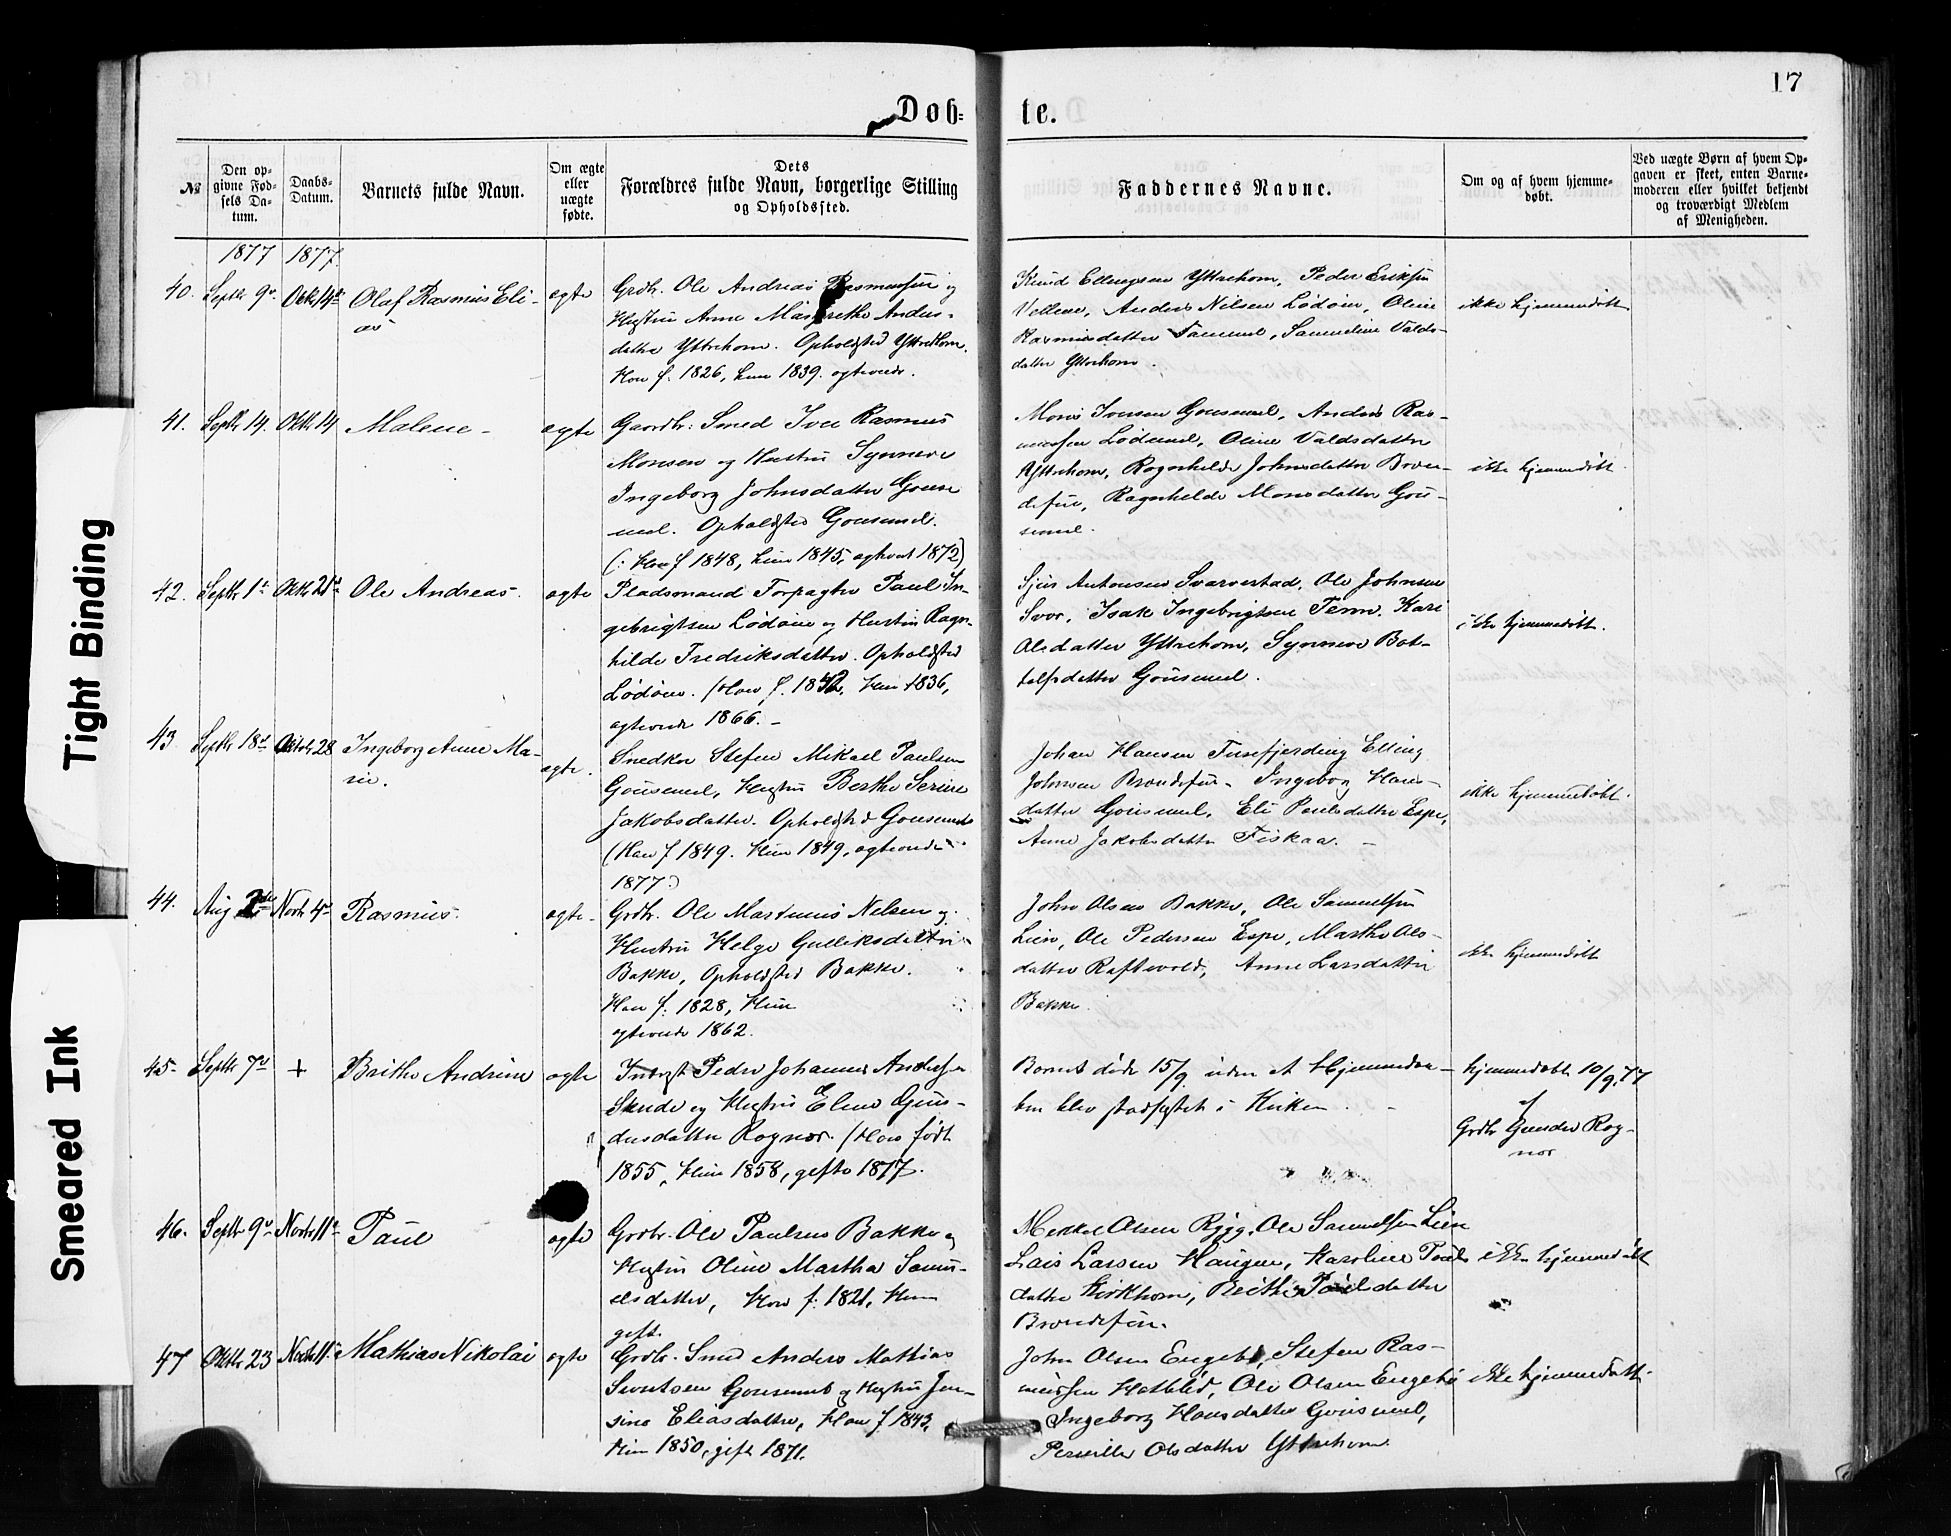 17
Døb-
te.
№
Den op-
givne Fød-
sels Da-
tum.
Daabs-
Datum.
Barnets fulde Navn.
Om ægte
eller
uægte
fødte.
Dets
Forældres fulde Navn, borgerlige Stilling
og Opholdssted.
Faddernes Navne.
Om og af hvem hjemme-
døbt.
Ved uægte Børn af hvem Op-
gaven er skeet, enten Barne-
moderen eller hvilket bekjendt
og troværdigt Medlem
af Menigheden.
1877 1877.
40. Septbr 9de Oktbr 14de Olaf Rasmus Eli-
as
ægte
Grdbr. Ole Andreas Rasmussen og
Hustru Anne Margrethe Anders-
datter Yttrehorn. Opholdsted Yttrehorn.
Han f. 1826, hun 1839. ægteviede.
Knud Ellingsen Yttrehorn, Peder Eriksen
Vellene, Anders Nilsen Lødøen, Oline
Rasmusdatter, Sammeline Valds-
datter Yttrehorn.
ikke hjemmedøbt
41. Septbr 14. Oktbr 14 Malene-
ægte
Gaardbr: Smed Iver Rasmus
Monsen og Hustru Synneve
Ingeborg Johnsdatter Gouse
uul. Opholdsted Gousuul.
(: Han f 1848, hun 1845, ægtviet 1872)
Mons Iversen Gousuul, Anders Ras-
mussen, Oline Valdsdatter
Yttrehorn, Ragnhilde Johnsdatter
Ragnhilde Monsdatter Gou-
seuul.
ikke hjemmedøbt.
42. Septbr 1ste Oktbr 21de Ole Andreas.
ægte
Pladsmand Forpagter Paul In-
gebrigtsen Lødøen og Hustru Ragn-
hilde Fredriksdatter. Opholdsted
Lødøen. (Han f. 1842, Hun 1836,
ægteviede 1866. -
Sjur Antonsen Svarvestad, Ole Johnsen
Svor, Isak Ingebrigtsen, Kari
Olsdatter Yttrehorn, Synneve Bot-
tolfsdatter Gousuul.
ikke hjemmedøbt.
43 Septbr 18de Oktobr 28 Ingeborg Anne Ma-
rie.
ægte.
Snedker Stefen Mikael Paulsen
Gousuul, Hustru Berthe Serine
Jakobsdatter. Opholdsted Gousuul
(Han f 1849. Hun 1849, ægteviede
1877)
Johan Hansen Elling
Johnsen - Ingeborg Hans-
datter Gousuul, Eli Paulsdatter Espe,
Anne Jakobsdatter Fiskaa. -
ikke hjemmedøbt.
44. Aug 2de Novbr 4de Rasmus.
ægte-
Grdbr. Ole Martinus Nelsen og
Hustru Helge Gulliksdatter
Bakke, Opholdsted Bakke.
Han f. 1828, Hun
ægteviede 1862.
John Olsen Bakke, Ole Samuelsen
Lien, Ole Pedersen Espe, Marthe Ols-
datter Raftevold, Anne Larsdatter
Bakke.
ikke hjemmedøbt
45- Septbr 7de + Brithe Andrine
ægte
Inderst Peder Johannes Andersen
og Hustru Eline Gun-
dersdatter Rognøe. (Han født
1855, Hun 1858, gifte 1877.
Barnet døde 15/9 uden at Hjemmedaa-
ben blev stadfæstet i Kirken.
hjemmedøbt 10/9.77
af
Grdbr Gunder Rog-
nøe
46. Septbr 9de Novbr 11te Paul
ægte
Grdbr. Ole Paulsen Bakke og
Hustru Oline Martha Samu-
elsdatter, Han f. 1821, Hun
gift.
Mekkel Olsen Rygg, Ole Samuelsen Lien
Lars Larsen Haugen, Karoline Pouls
datter Kirkhorn, Brithe Poulsdatter
ikke hjemmedøbt
47 Oktbr 23 Novbr 11te Mathias Nikolai
ægte
Grdbr. Smed Anders Mathias
Sivertsen Gousuul og Hustru Jen-
sine Eliasdatter, Han f. 1843,
Hun 1850, gift 1871.
John Olsen Engebø, Stefen Ras-
mussen Hatleld, Ole Olsen Engebø
Ingeborg Hansdatter Gousuul,
Pernille Olsdatter Yttrehorn
ikke hjemmedøbt.
Tight Binding
Smeared Ink